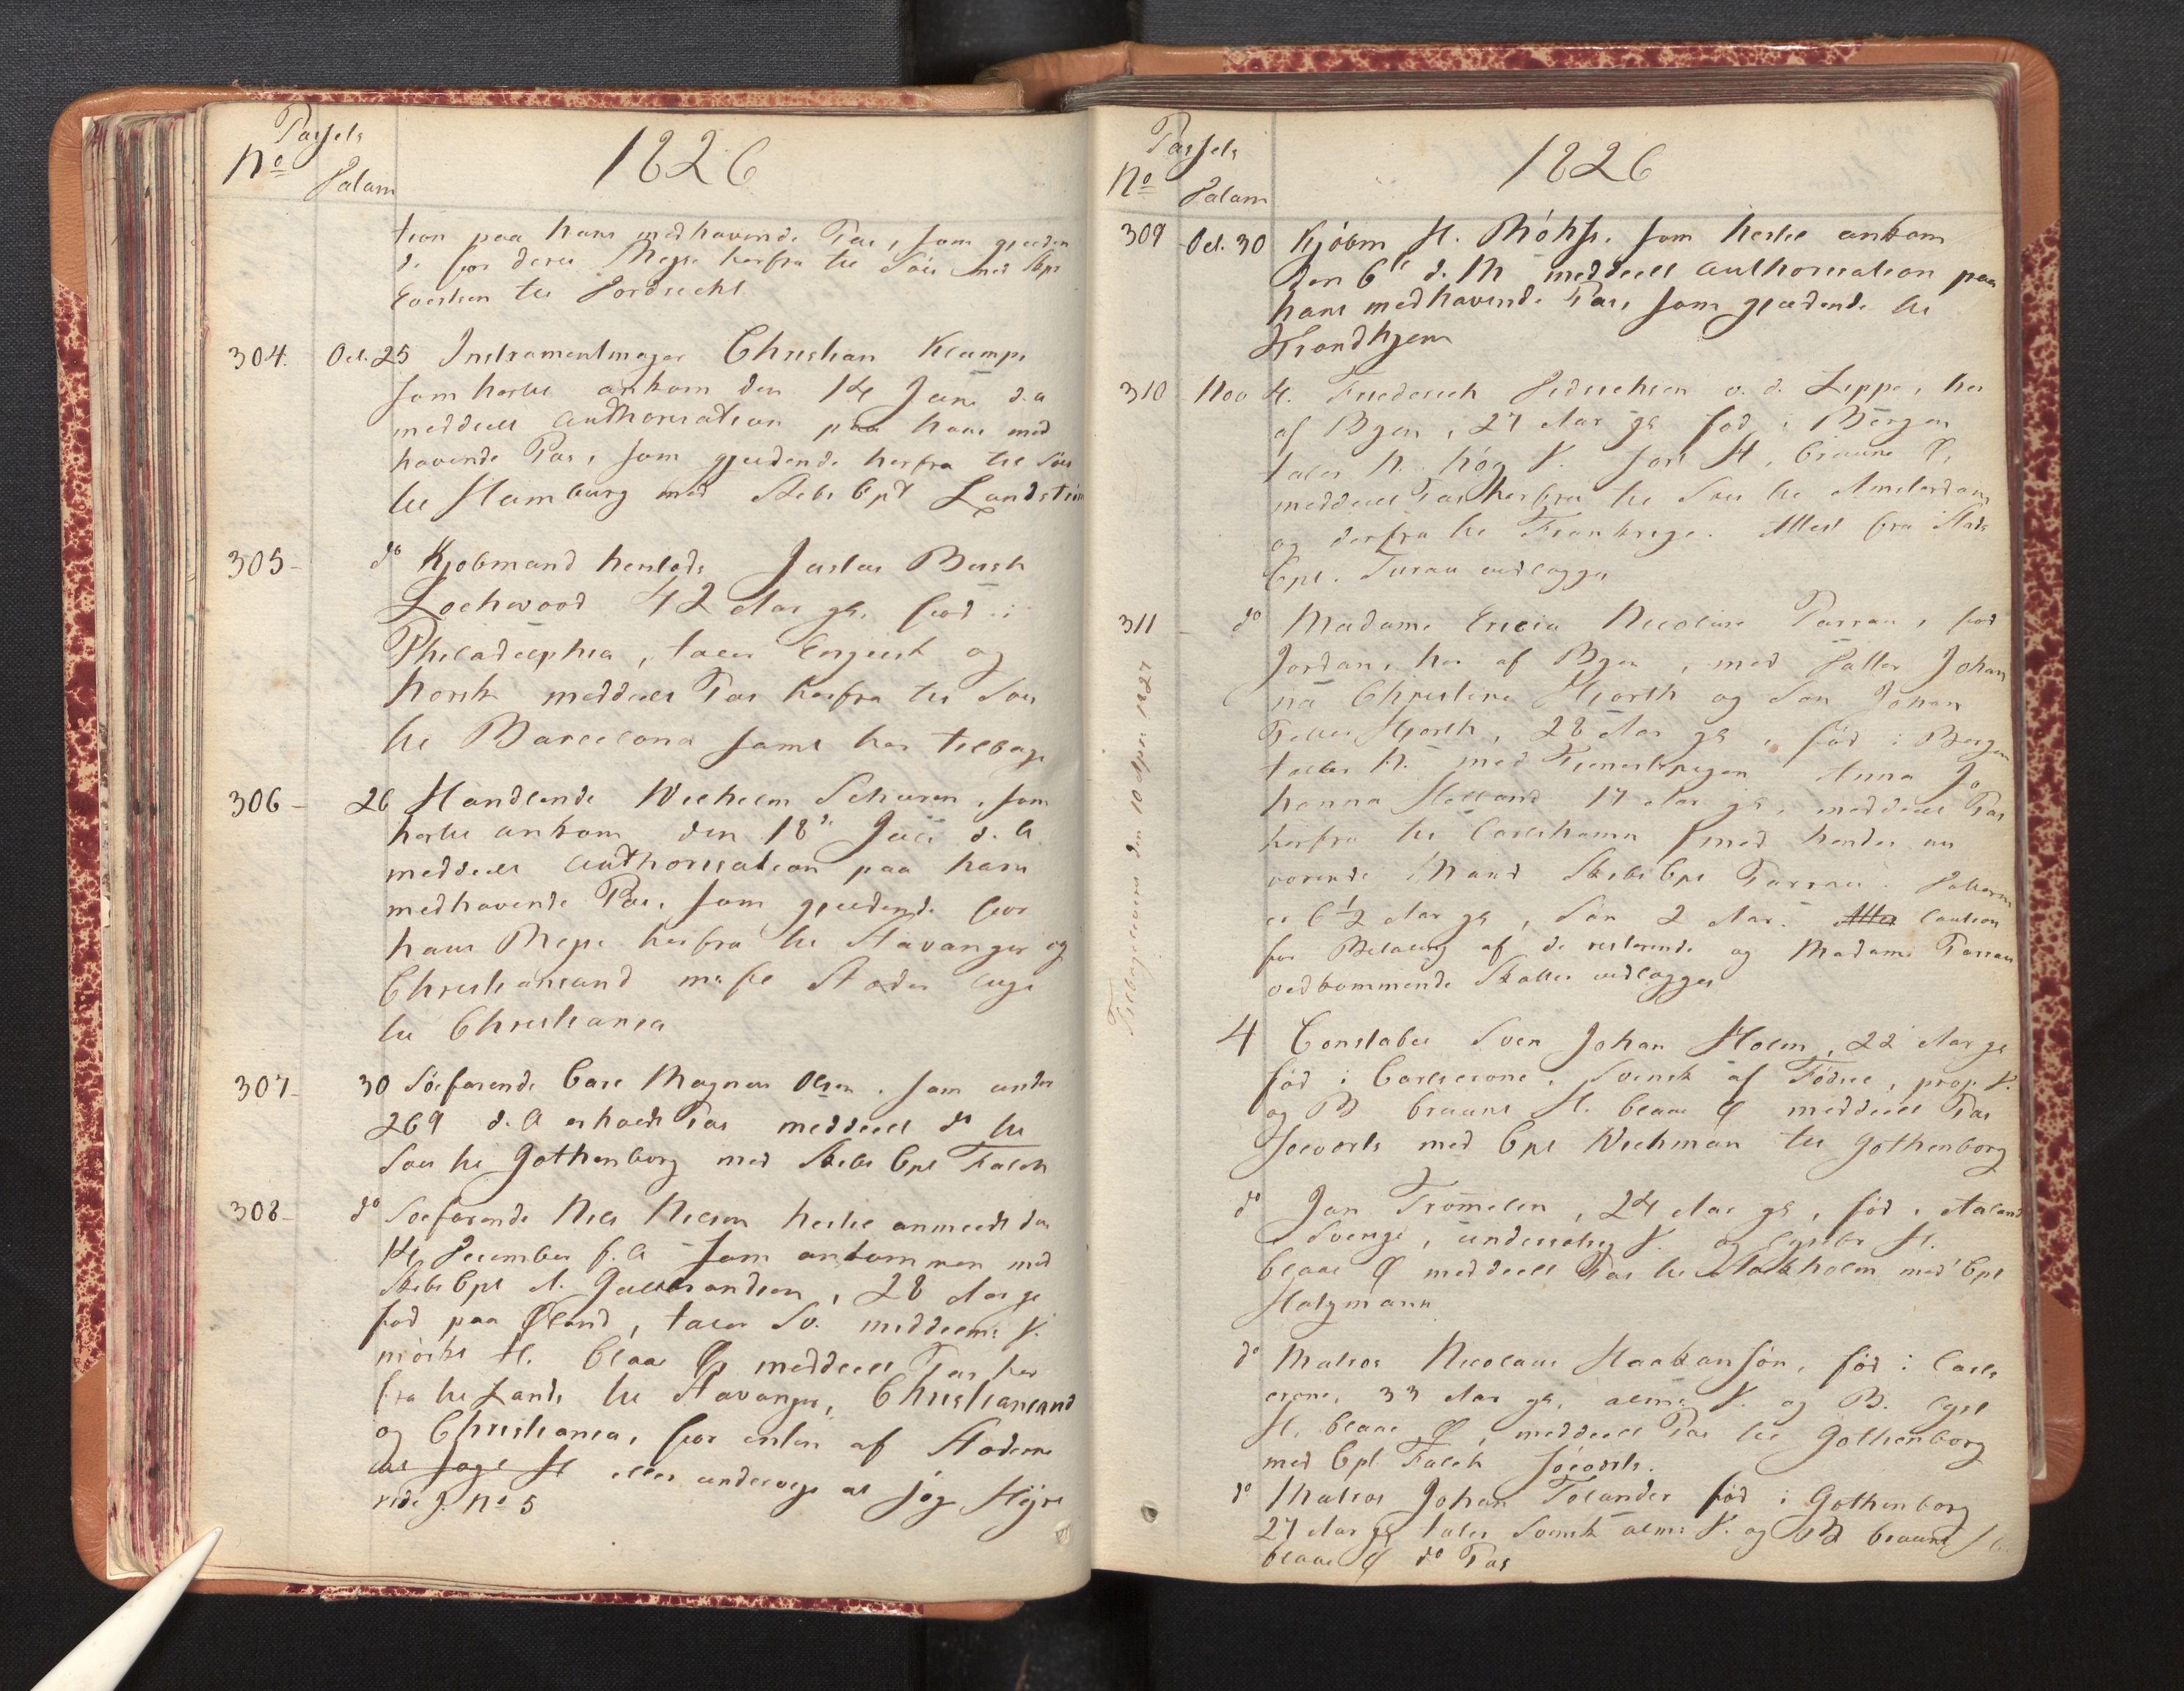 Passets
No
Datum
1826
tion paa hans medhavende Pas, som gjelden
de for deres Rejse herfra til Søes med Skpr
Evertsen til Dordrecht
304. Oct. 25 Instrumentmager Christian Klamp
som hertil ankom den 14 Juni d. A
meddeelt Authorisation paa hans med
havende Pas, som gjeldende herfra til Søes
til Hamburg med Skibs Cpt Landström
305- do Kjøbmand henlods Justus Bush
Lockwood 42 Aar gl. fød i
Philadelphia, taler Engelsk og
Norsk meddeelt Pas herfra til Søes
til Barcelona samt her tilbage
306- 26 Handlende Wilhelm Schuren, som
hertil ankom den 18de Juli d. A
meddeelt Authorisation paa hans
medhavende Pas, som gjeldende for
hans Rejse herfra til Stavanger og
Christiansand m: fl Stæder lige
til Christiania
307- 30 Søefarende Carl Magnus Olsen, som under
269 d. A erholdt Pas meddeelt do til
Søes til Gothenborg med Skibs Cpt Falck
308- do Søefarende Nils Nilson hertil anmeldt den
14 December f. A som ankommen med
Skibs Cpt A. Gulbrandsen, 28 Aar gl
fød paa Øland, taler Sv. middelm: V.
mörkt H. blaae Ø meddeelt Pas her
fra til Lands til Stavanger, Christiansand
og Christiania, for enten af Stæderne
at søge H eller underveis at søge Hyre
vide J. No 5
Passets
No
Datum
1826
309 Oct. 30 Kjøbm H. Röhss, som hertil ankom
den 6te d. M meddeelt Authorisation paa
hans medhavende Pas, som gjeldende til
Trondhjem
310 Nov 4. Friederich Didrichsen v. d. Lippe, her
af Byen, 27 Aar gl fød i Bergen
taler N. høg V. sort H, bruune Ø,
meddeelt Pas herfra til Søes til Amsterdam
og derfra til Frankrige. Attest fra Stads
Cpt. Turau vedlagges
311 - do Madame Ericia Nicoline Parrau, fød
Jordan, her af Byen, med Datter Johan
na Christine Hjorth og Søn Johan
Teller Hjorth, 28 Aar gl, fød i Bergen
taler N. med Tienestepigen Anna Jo
hanna Holland 17 Aar gl, meddeelt Pas
herfra til Carlshamn med hendes nu
værende Mand Skibs Cpt Parrau. Datteren
er 6½ Aar gl, Søn 2 Aar. Attes Caution
for Betaling af de resterende og Madame Parrau
vedkommende Skatter vedlagges
Tilbageleveret den 10 April 1827
4 Constabel Sven Johan Holm, 22 Aar gl
fød i Carlscrone, Svensk af Fødsel, prop V.
og B bruunt H. blaae Ø meddeelt Pas
søeverts med Cpt Wichman til Gothenborg
do Jan Trømelen, 24 Aar gl, fød i Aaland
i Sverige, undersætsig V. og lysebr H.
blaae Ø meddeelt Pas til Stokholm med Cpt
Holzmann
do Matros Nicolaus Haakansön, fød i Carls
crone, 33 Aar gl, alm: V. og B. lyst
H. blaae Ø, meddeelt Pas til Gothenborg
med Cpt Falck søeverts.
do Matros Johan Tolander fød i Gothenborg
27 Aar gl taler Svensk alm: V. og B bruunt H.
blaae Ø do Pas